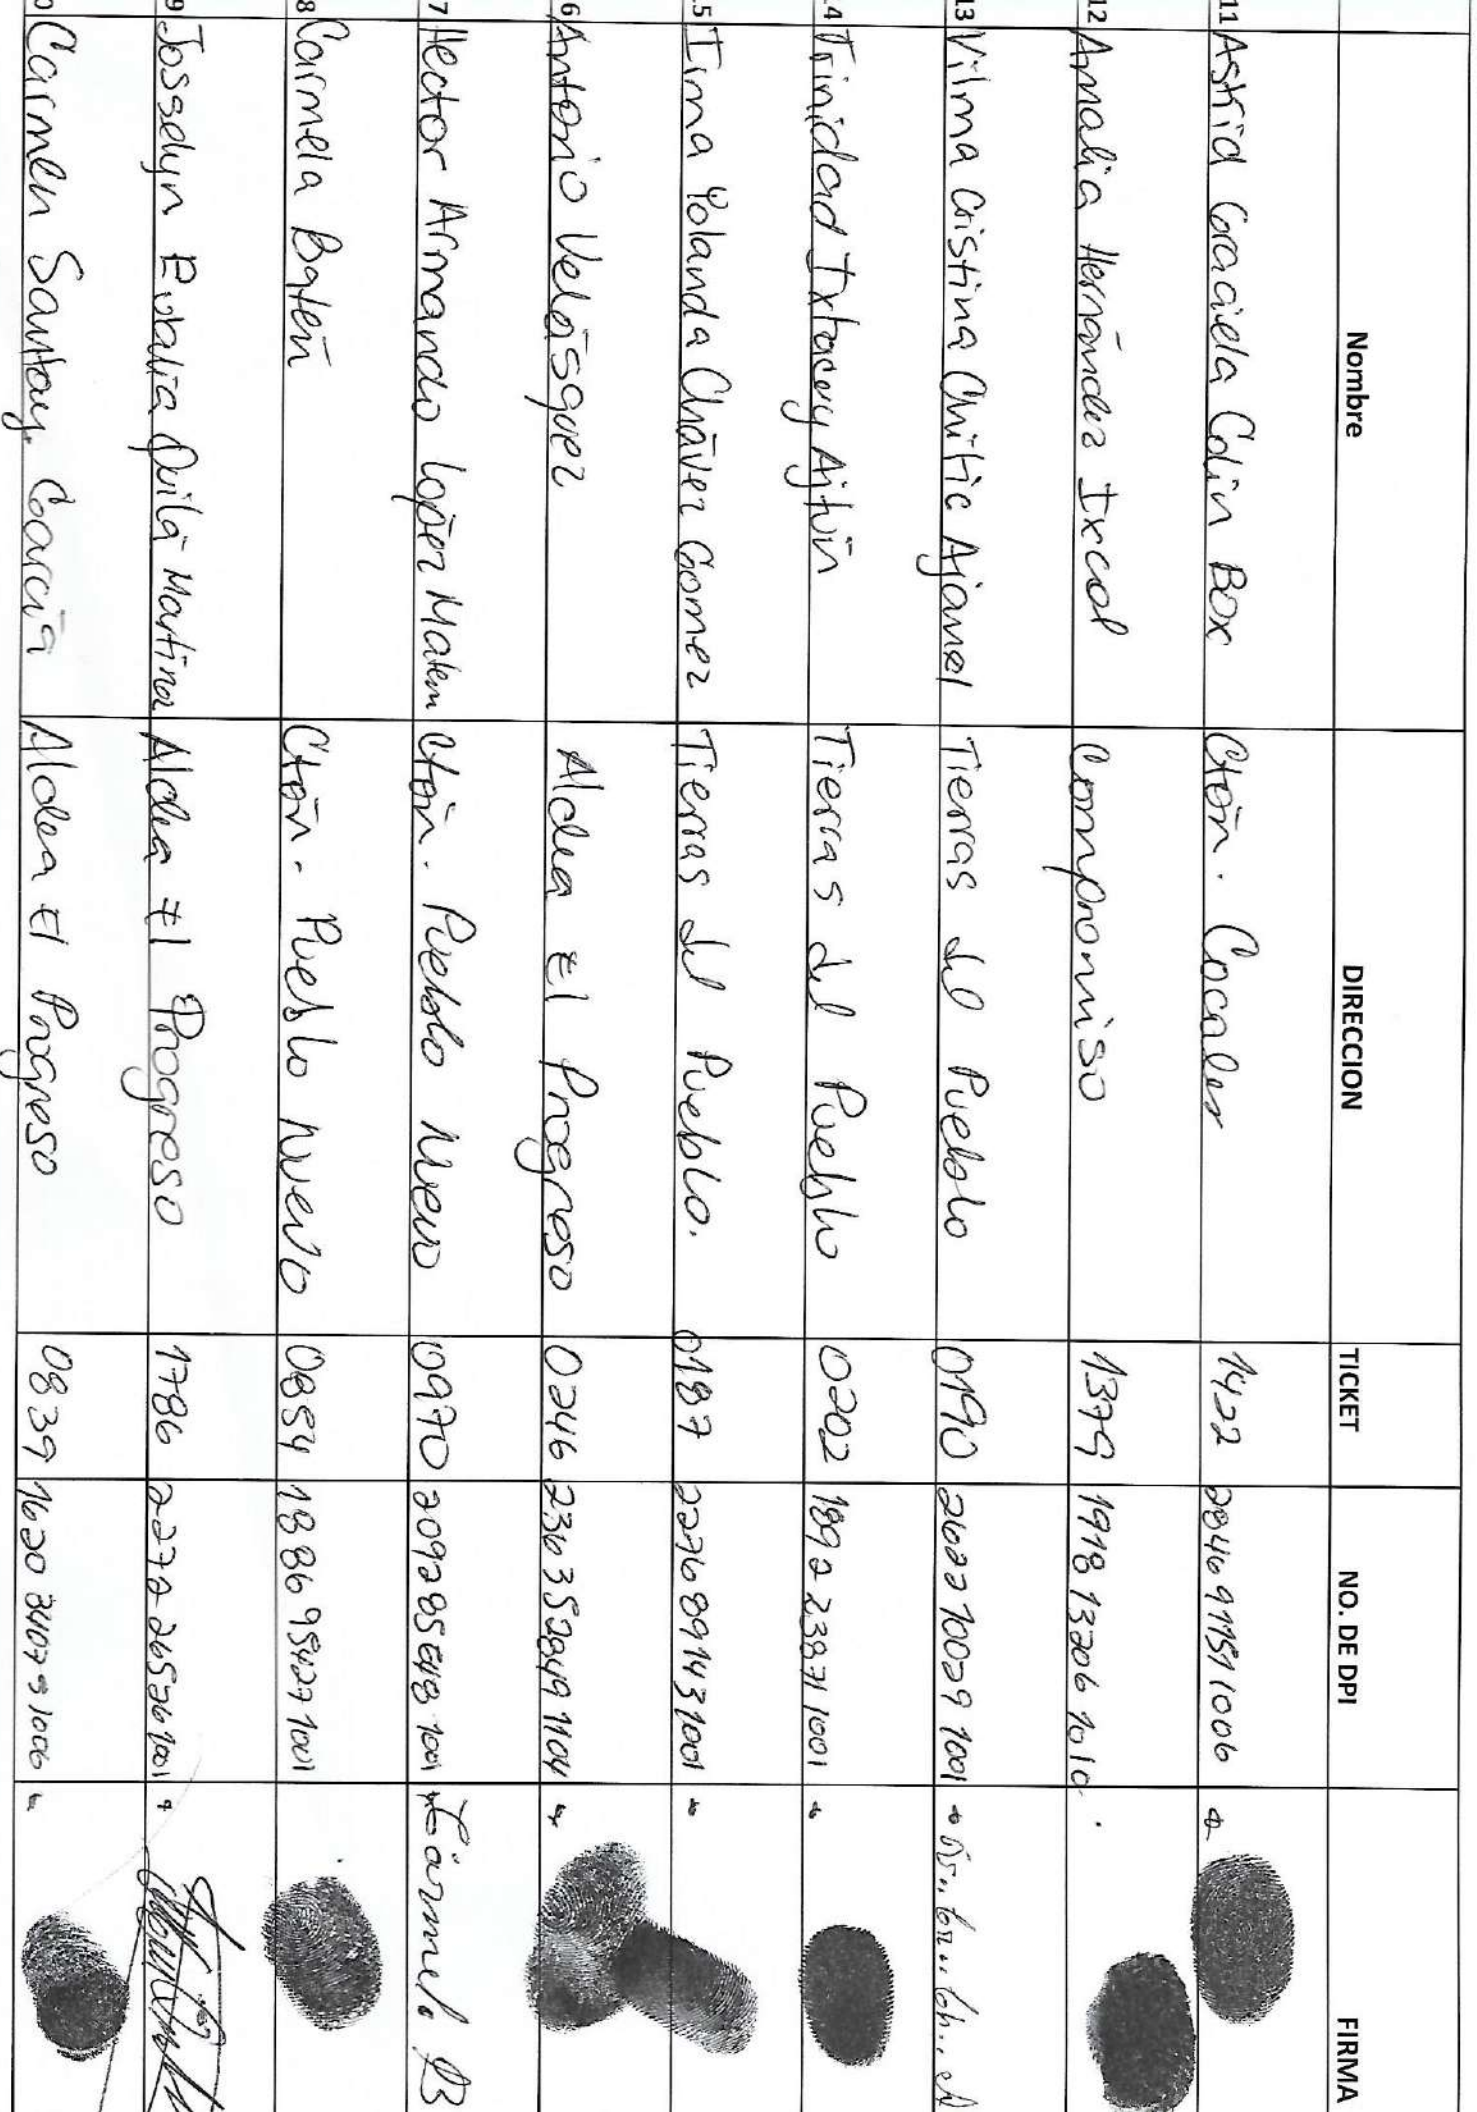 Nombre DIRECCION TICKET NO. DE DPI FIRMA
11 Astrid Graciela Colín Box Ctón. Cocales 1422 2846 91151 1006
12 Amalia Hernández Ixcol Compromiso 1379 1918 13206 1010
13 Vilma Cristina Chitic Ajanel Tierras del Pueblo 0190 2622 10029 1001
4 Trinidad Ixtacuy Ajtún Tierras del Pueblo 0202 1892 23871 1001
5 Irma Yolanda Cháver Gomez Tierras del Pueblo. 0187 2276 89143 1001
6 Antonio Velásquez Aldea El Progreso 0246 2363 52849 1104
7 Hector Armando López Matem Ctón. Pueblo Nuevo 0970 2092 85648 1001
8 Carmela Batén Ctón. Pueblo Nuevo 0854 1886 95427 1001
9 Josselyn Eulalia Quilá Martinez Aldea El Progreso 1786 2272 26526 1001
0 Carmen Santay Garcia Aldea El Progreso 0839 1620 34079 1006